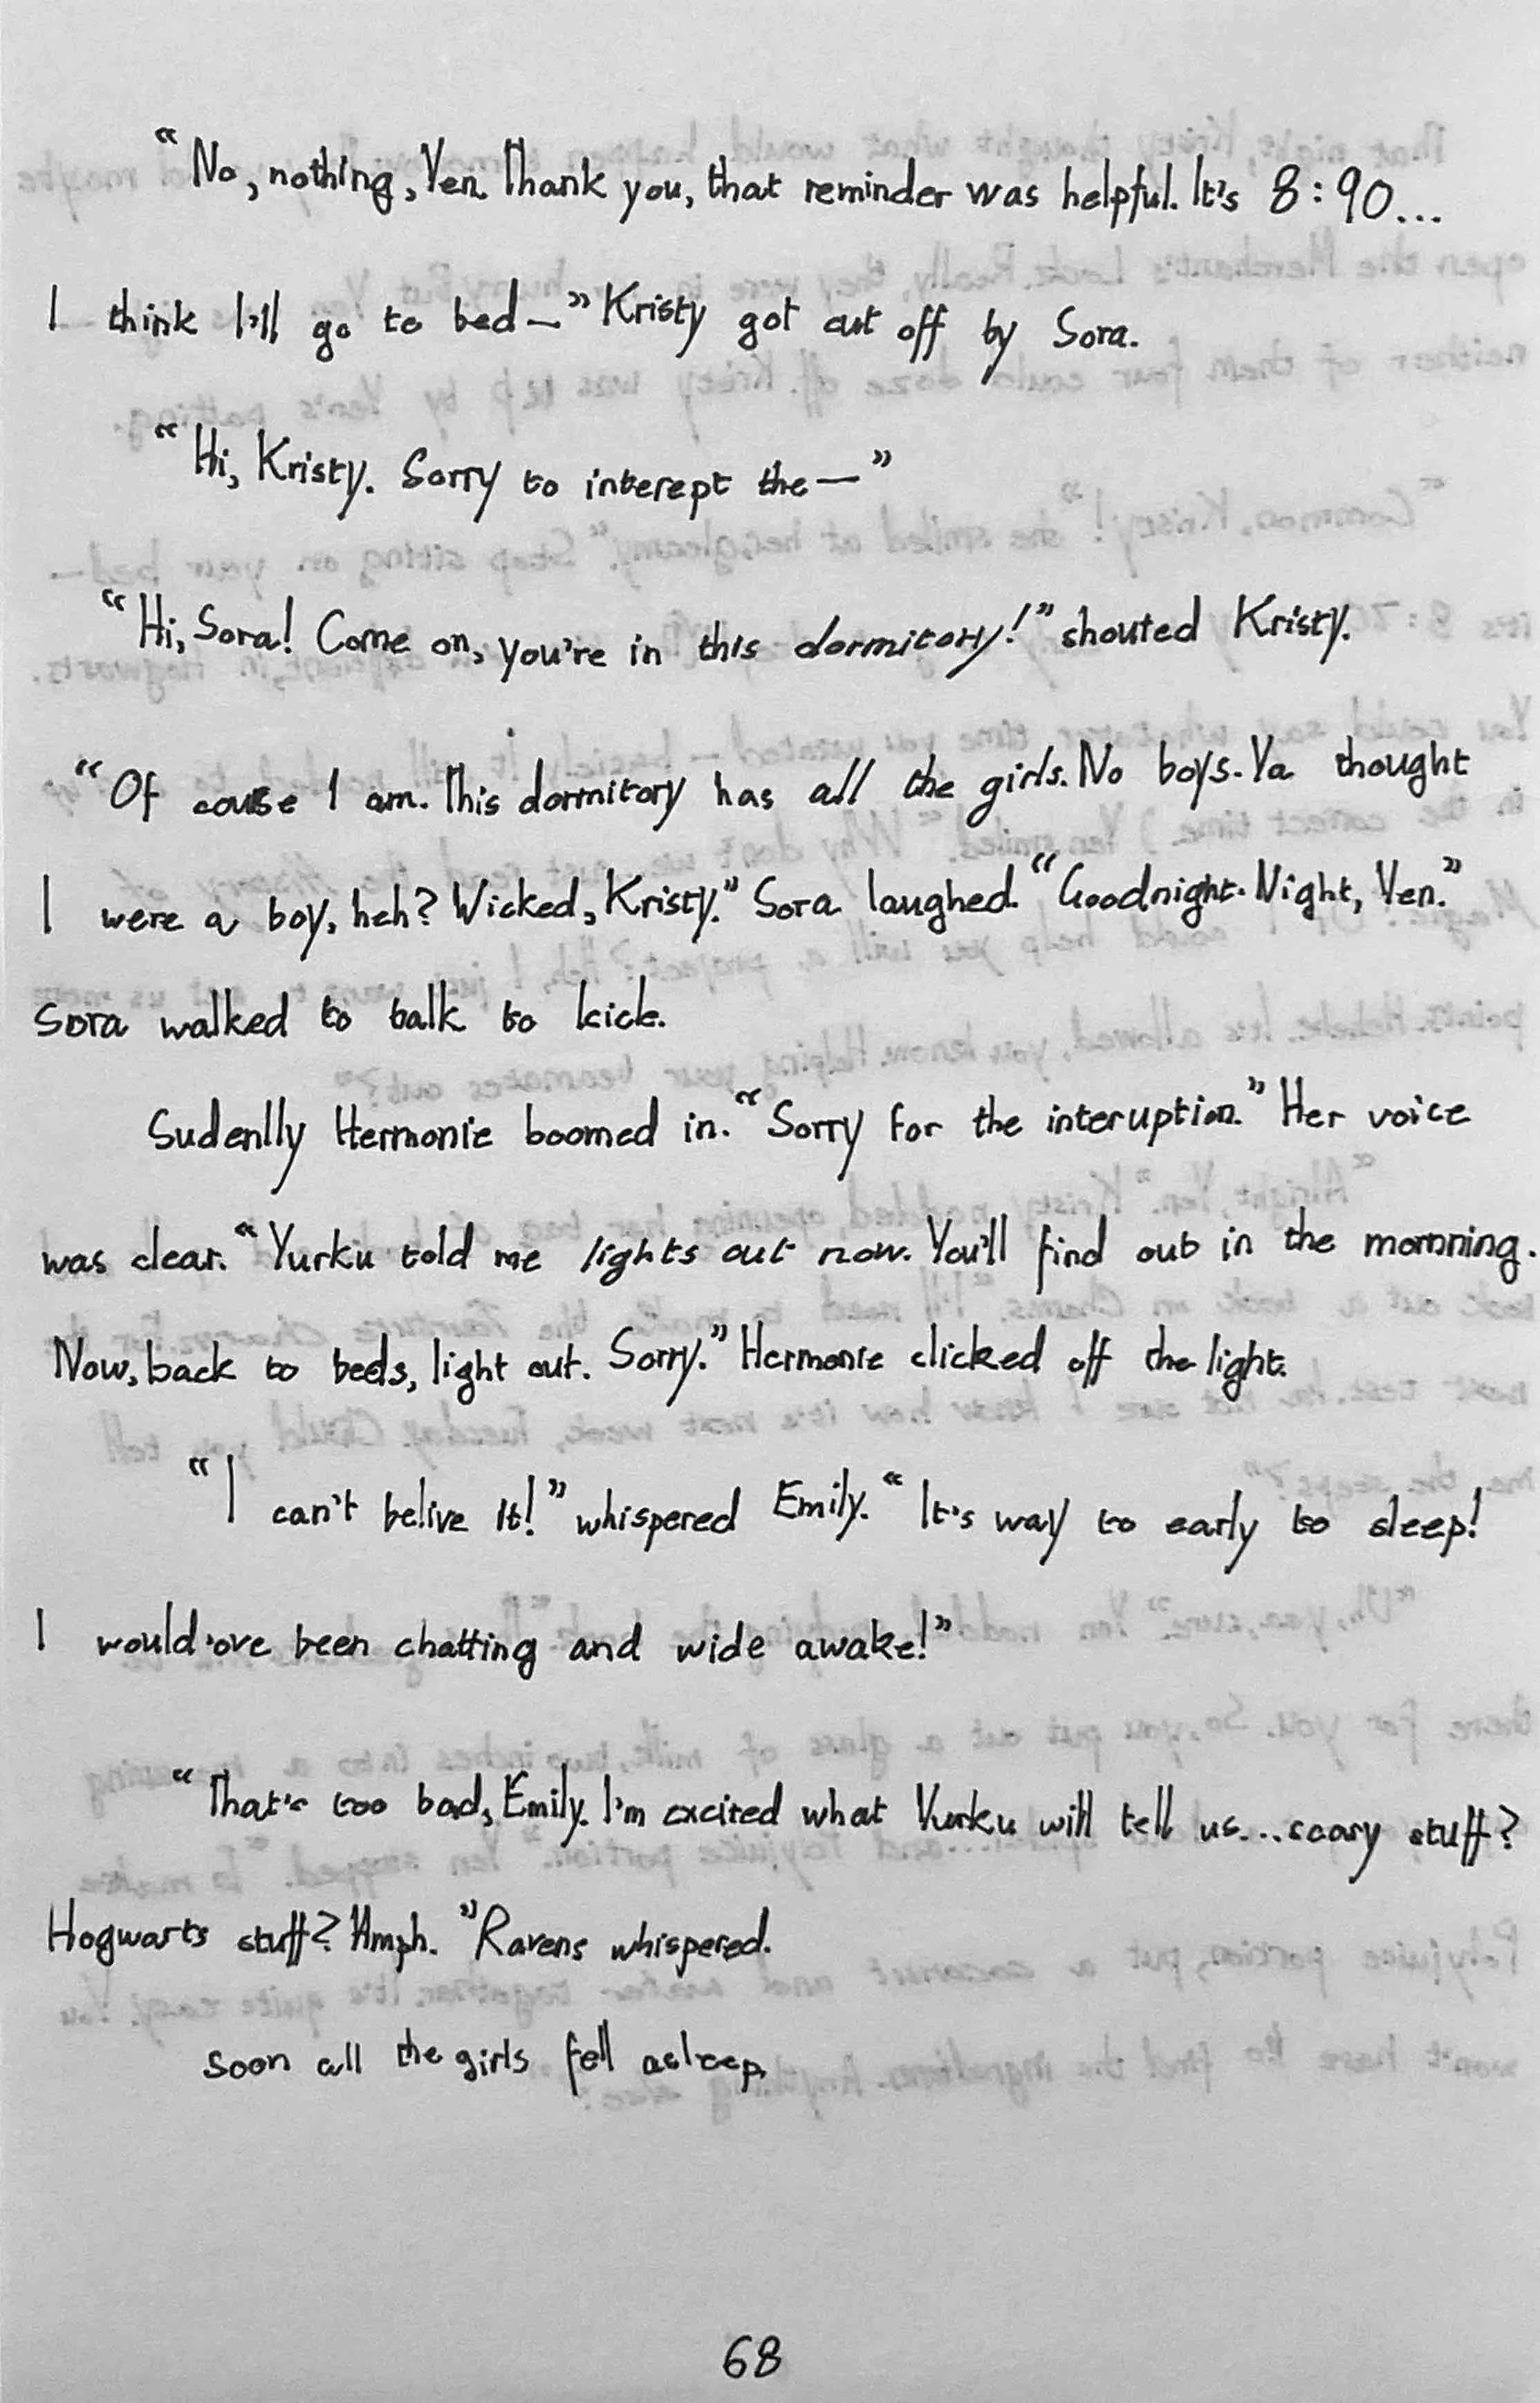 “No, nothing, Yen. Thank you, that reminder was helpful. It's 8:90...
I think I'll go to bed—” Kristy got cut off by Sora.
“Hi, Kristy. Sorry to interept the—”
“Hi, Sora! Come on, you're in this dormitory!” shouted Kristy.
“Of couse I am. This dormitory has all the girls. No boys. Ya thought
I were a boy, heh? Wicked, Kristy.” Sora laughed. “Goodnight. Night, Yen.”
Sora walked to talk to kick.
Sudenlly Hermonie boomed in. “Sorry for the interuption.” Her voice
was clear. “Yurku told me lights out now. You'll find out in the mornning.
Now, back to beds, light out. Sorry.” Hermonie clicked off the light.
“I can't belive it!” whispered Emily. “It's way to early to sleep!
I would'ove been chatting and wide awake!”
“That's too bad, Emily. I'm excited what Yurku will tell us...scary stuff?
Hogwarts stuff? Hmph.” Ravens whispered.
Soon all the girls fell asleep.
68